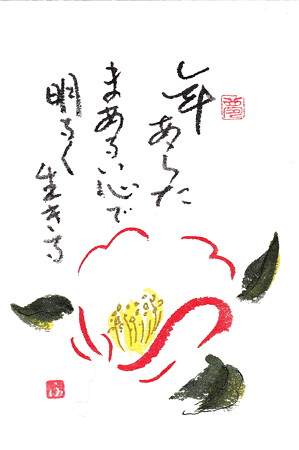 年あらた
まあるい心で
明るく生きる